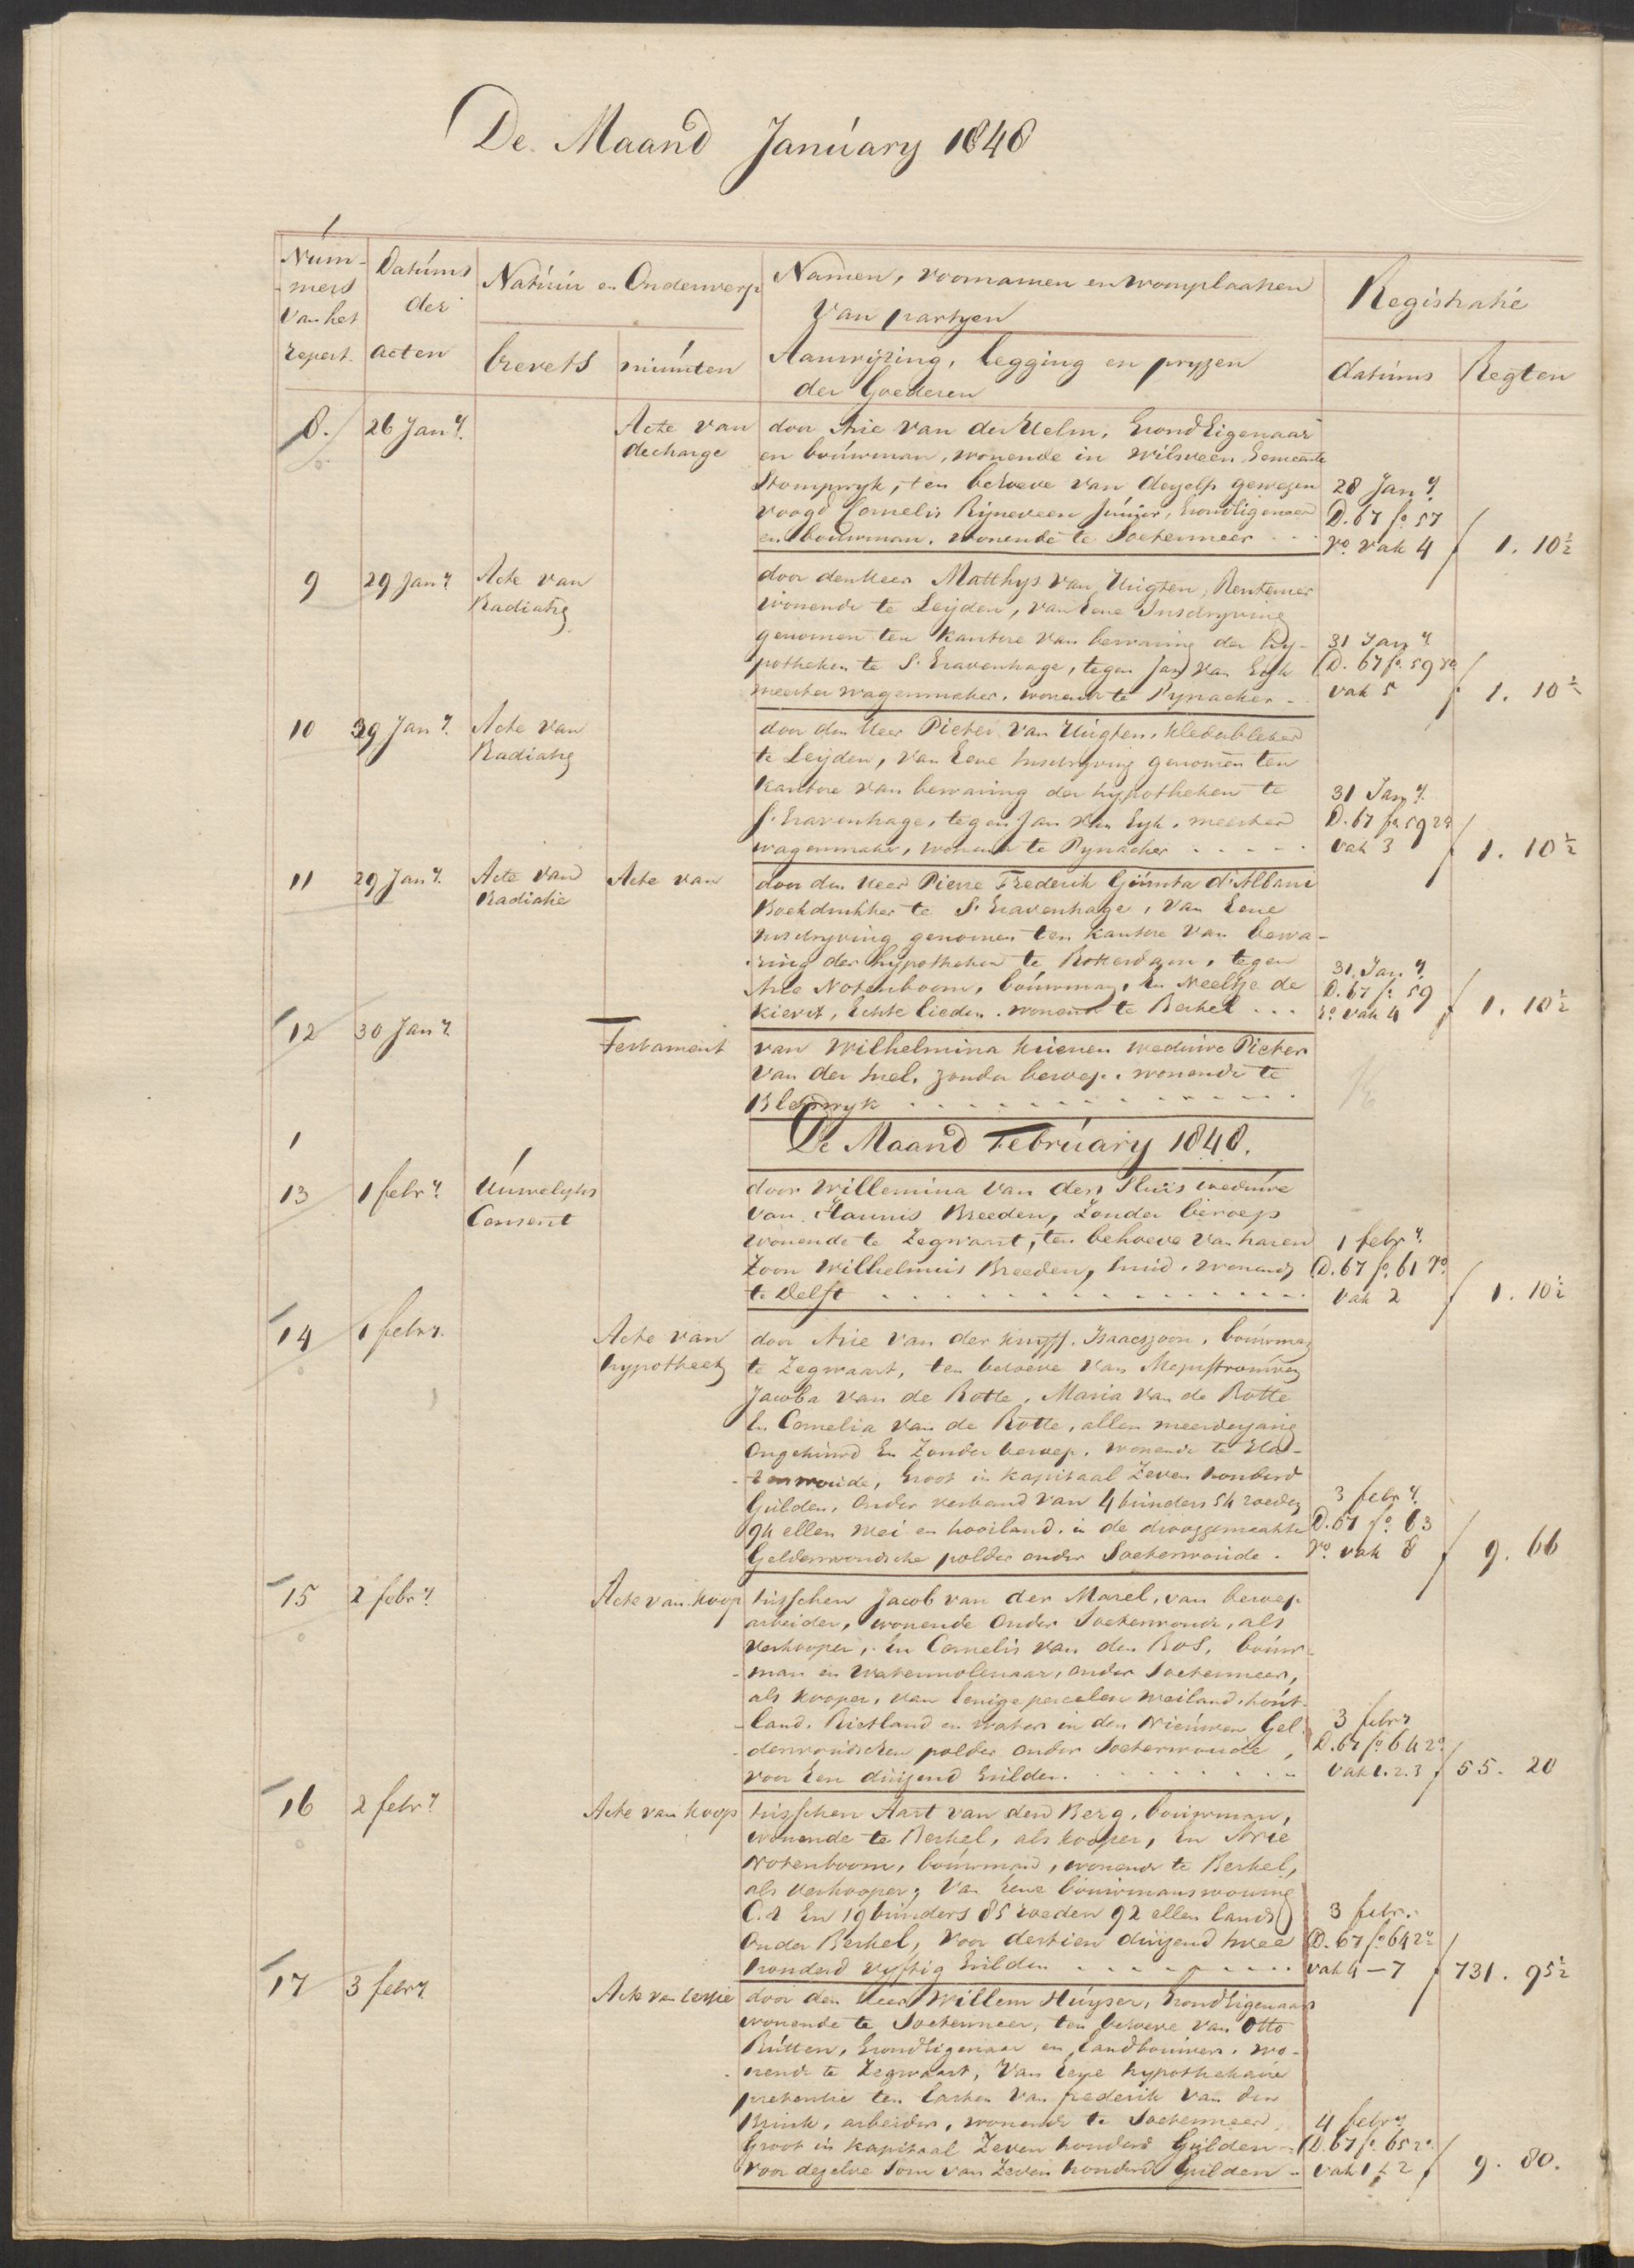 De Maand January 1848
Num-
-mers
van het
repert.
Datums
der
acten
Natuur en Onderwerp
brevets
minuten
Namen, voornamen en woonplaatsen
van partyen
Aanwijzing, legging en pryzen
der Goederen
Registratie
datums
Regten
8. 26 Jany.
Acte van
decharge
door Arie van der Helm, Grond Eigenaar
en bouwman, wonende in Wilsveen Gemeente
Stompwyk, ten behoeve van deszelfs gewezen
voogd Cornelis Rijneveen Junior, Grondeigenaar
en bouwman, wonende te Soetermeer . . .
28 Jany.
D. 67 fo. 57
vo. vak 4
f 1. 10½
9 29 Jany.
Acte van
Radiatie
door den Heer Matthys van Hugten, Rentenier
wonende te Leijden, van Eene Inschryving
genomen ten kantore van bewaring der Hy-
potheken te S. Gravenhage, tegen Jan van Eyk
meester wagenmaker, wonende te Pynacker -
31 Jany.
D. 67 fo. 59 ro
vak 5
f 1. 10½
10 29 Jany.
Acte van
Radiatie
door den Heer Pieter van Hugten, kleederbleker
te Leijden, van Eene Inschryving genomen ten
kantore van bewaring der hypotheken te
S. Gravenhage, tegen Jan van Eyk, meester
wagenmaker, wonende te Pynacker . . . . .
31 Jany.
D. 67 fo. 59 ro
vak 3
f 1. 10½
11 29 Jany.
Acte van
Radiatie
Acte van
door den Heer Pierre Frederik Giunta d'Albani
Boekdrukker te S. Gravenhage, van Eene
Inschryving genomen ten kantore van bewa-
-ring der hypotheken te Rotterdam, tegen
Arie Notenboom, bouwman, En Neeltje de
Kievit, Echte lieden, wonende te Berkel . . .
31 Jany.
D. 67 fo. 59
ro. vak 4
f 1. 10½
12 30 Jany.
Testament
van Wilhelmina Krienen weduwe Pieter
van der Snel, zonder beroep, wonende te
Bleiswyk . . . . . . . . . . . . .
De Maand February 1848.
13 1 febry.
Huwelyks
Consent
door Willemina van der Sluis weduwe
van Hannis Breeden, Zonder beroep
wonende te Zegwaart, ten behoeve van haren
Zoon Wilhelmus Breeden, smid, wonende
te Delft . . . . . . . . . . . . . . .
1 febry.
D. 67 fo. 61 vo.
vak 2
f 1. 10½
14 1 febry.
Acte van
hypotheek
door Arie van der Knyff, Isaacszoon, bouwman
te Zegwaart, ten behoeve van Mejuffrouwen
Jacoba van de Rotte, Maria van de Rotte
En Cornelia van de Rotte, allen meerderjarig
Ongehuwd En Zonder beroep, wonende te Ha-
-zerswoude, Groot in kapitaal Zeven honderd
Gulden, Onder verband van 4 bunders 54 roeden
94 ellen wei en hooiland, in de drooggemaakte
Gelderwoudsche polder onder Soeterwoude .
3 febry.
D. 67 fo. 63
vo. vak 8
f 9. 66
15 2 febry.
Acte van koop
tusschen Jacob van der Marel, van beroep
arbeider, wonende Onder Soeterwoude, als
verkooper, En Cornelis van den Bos, bouw-
-man en watermolenaar, onder Soetermeer,
als kooper, van Eenige perceelen weiland, hout-
-land, Rietland en water in den Nieuwen Gel-
-derwoudschen polder onder Soeterwoude,
voor Een duizend Gulden. . . . . . . . . .
3 febry
D. 67 fo. 64 ro
vak 1. 2. 3
f 55. 20
16 2 febry.
Acte van koop
tusschen Aart van den Berg, bouwman,
wonende te Berkel, als kooper, En Arie
Notenboom, bouwman, wonende te Berkel,
als verkooper, van Eene bouwmanswoning
C.a En 19 bunders 85 roeden 92 ellen lands
Onder Berkel, voor dertien duizend twee
honderd vyftig Gulden . . . . . . . . .
3 febr.
D. 67 fo. 64 ro
vak 4 - 7
f 731. 95½
17 3 febry
Acte van Cessie
door den Heer Willem Huyser, Grondeigenaar
wonende te Soetermeer, ten behoeve van Otto
Rutten, Grondeigenaar en Landbouwer, wo-
-nende te Zegwaart, van Eene hypothekaire
pretentie ten lasten van frederik van den
Brink, arbeider, wonende te Soetermeer
Groot in kapitaal Zeven honderd Gulden -
voor dezelve som van Zeven honderd Gulden -
4 febry
D. 67 fo. 65 ro
vak 1 & 2
f 9. 80.